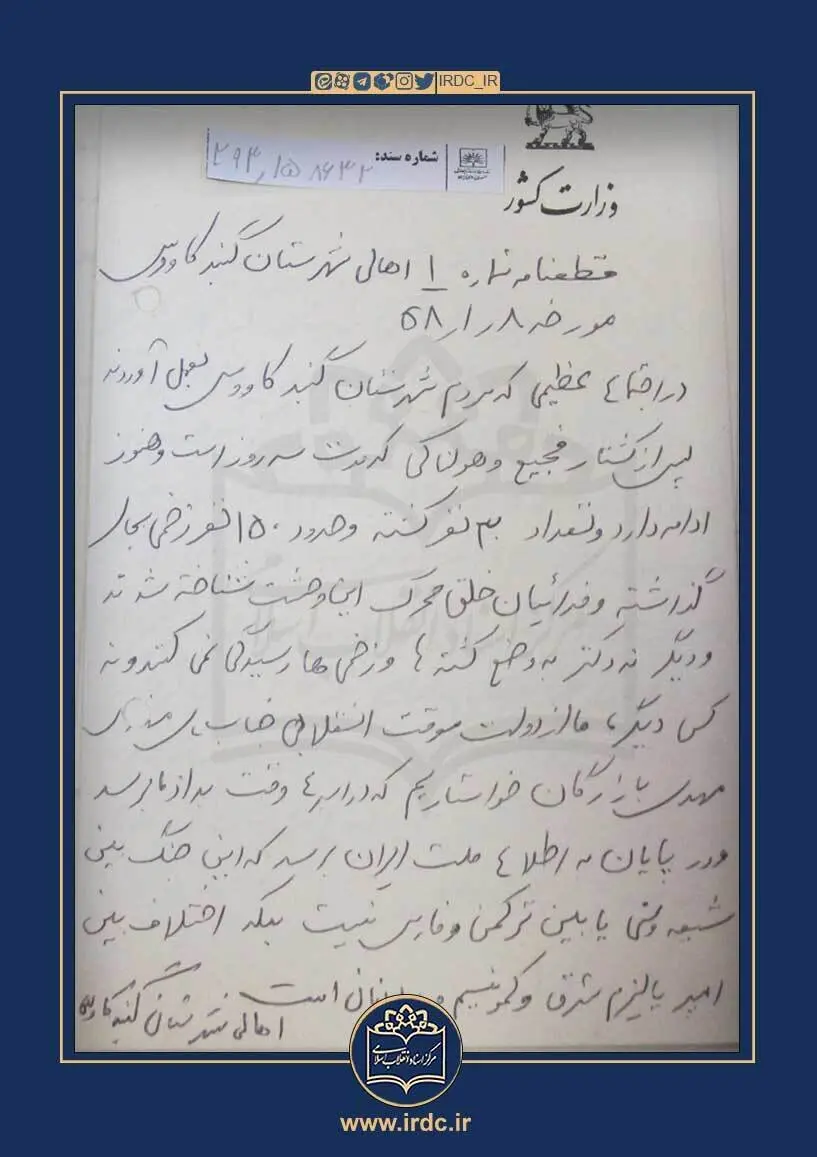 IRDC_IR
شماره سند: ۲۹۳ر۱۵۸۶۳۲
وزارت کشور
قطعنامه شماره ۱ اهالی شهرستان گنبد کاووس
مورخه ۸ر۱ر۵۸
در اجتماع عظیمی که مردم شهرستان گنبد کاووس بعمل آوردند
پس از کشتار فجیع و هولناکی که مدت سه روز است و هنوز
ادامه دارد و تعداد نفر کشته و حدود ۱۵۰ نفر زخمی بجای
گذاشته و فدائیان خلق محرک این وحشت شناخته شدند
و دیگر نه دکتر به وضع کشته ها و زخمی ها رسیدگی نمی کنند و نه
کس دیگر، ما از دولت موقت انقلابی جناب آقای مهندس
مهدی بازرگان خواستاریم که وقت بداد ما برسد
و در پایان به اطلاع ملت ایران برسد که این جنگ بین
شیعه و سنی یا بین ترکمن و فارس نیست بلکه اختلاف بین
امپریالیزم شرق و کمونیسم و است
اهالی شهرستان گنبد کاووس
مرکز اسناد انقلاب اسلامی
www.irdc.ir